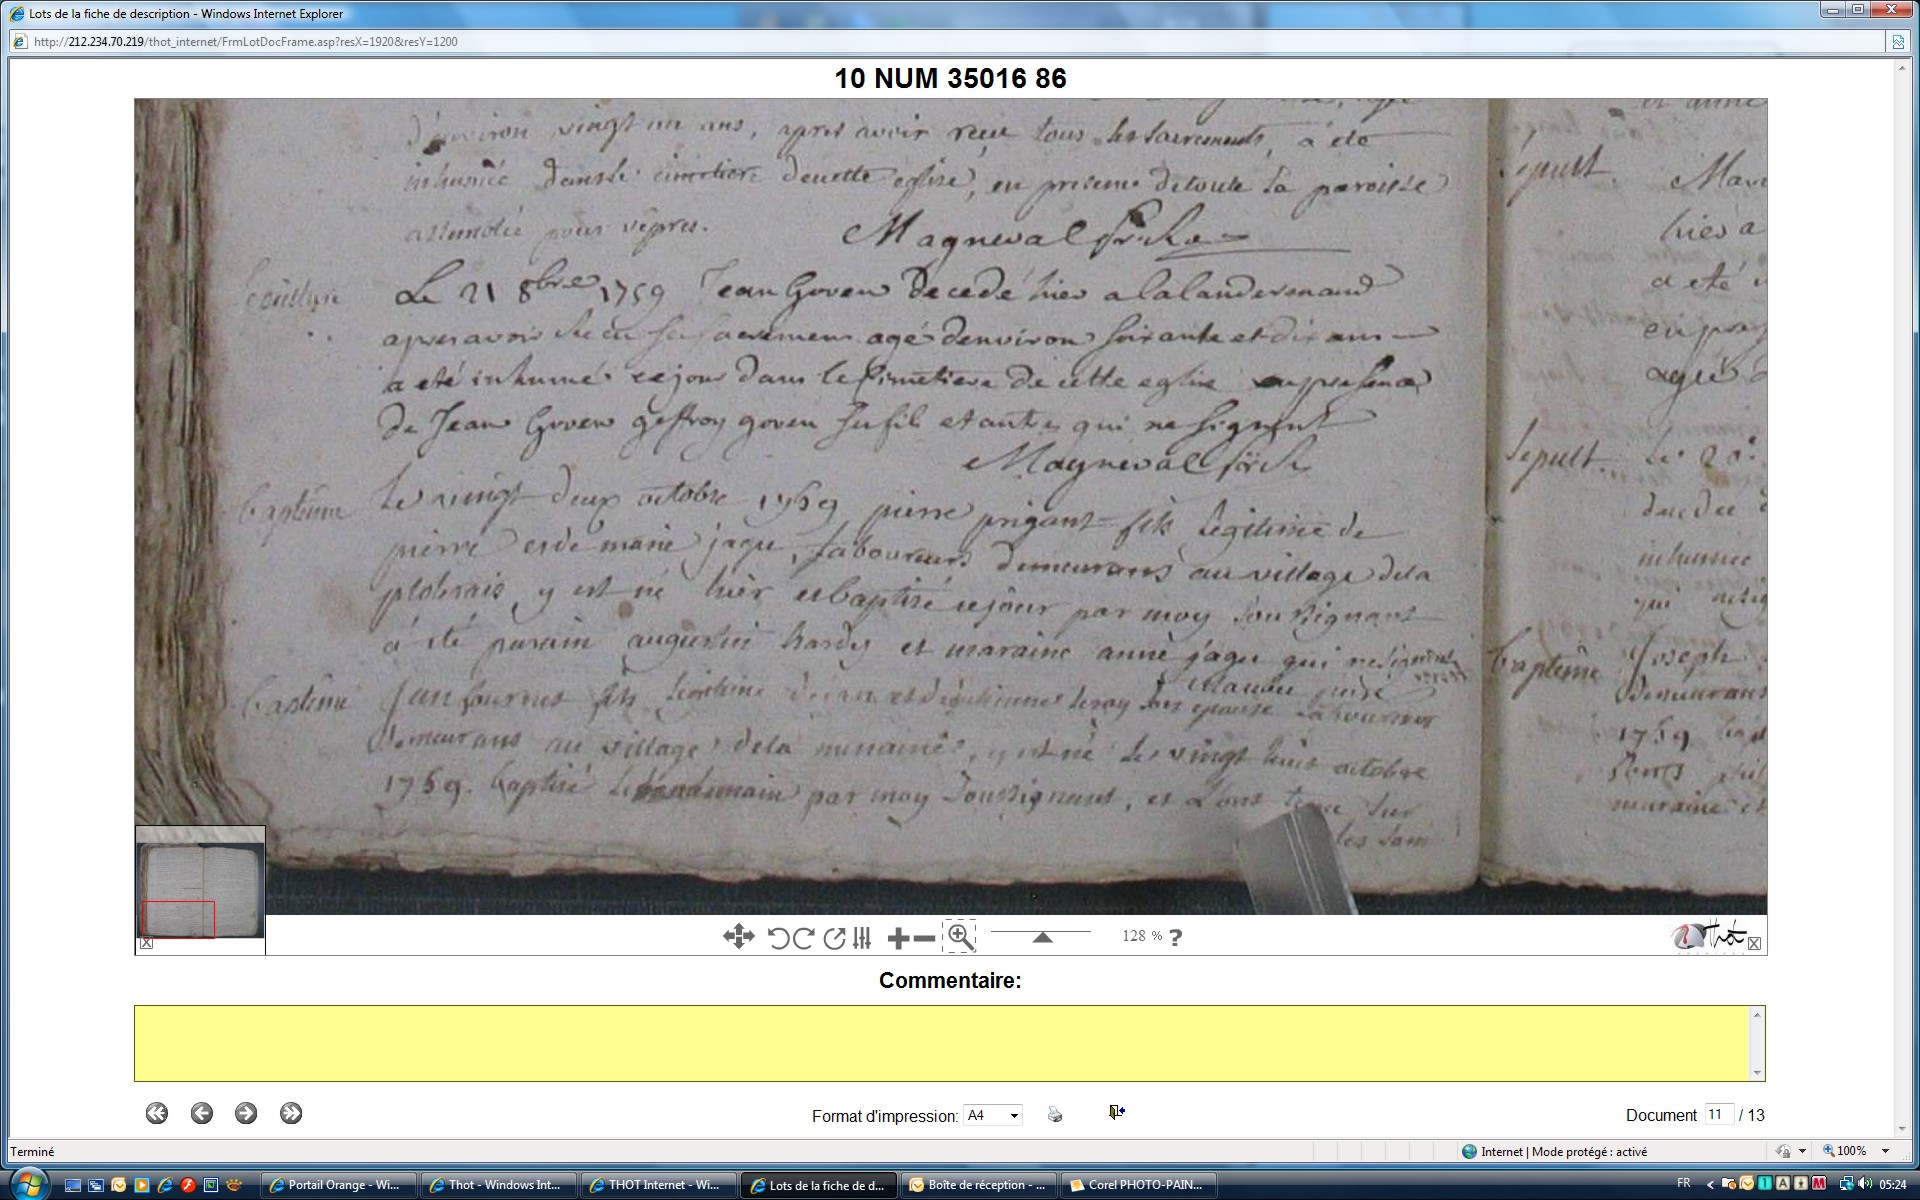 Lots de la fiche de description - Windows Internet Explorer
http://212.234.70.219/thot_internet/FrmLotDocFrame.asp?resX=1920&resY=1200
10 NUM 35016 86
d'environ vingt un ans, apres avoir reçu tous les sacrements, a été
inhumée dans le cimetiere de cette eglise, en presence de toute la paroisse
assemblée pour vêpres. Magneval
Le 21 8bre 1759 Jean Goven decedé hier a
apres avoir agé denviron soixante et dix ans
a eté inhumé cejour dans le Cimetiere de cette eglise en presence
de Jean Goven geffroy goven et autres qui ne signent
Magneval
baptême Le vingt deux octobre 1759 pierre prigant fils legitime de
pierre et de marie jagu, laboureurs demeurans au village de la
y est né hier et baptisé cejour par moy soussignant
a été parain augustin hardy et maraine anne jagu qui ne signent
baptême Jean fils legitime de jean et leroy son epouse laboureurs
demeurans au village de la, y est né le vingt huit octobre
1759. baptisé le lendemain par moy soussignant, et l'ont tenu sur
les
sepult.
Mar
hier a
a eté
agé d
Sepult. Le 20
inhumée
qui
baptême Joseph
demeurans
1759
maraine et
Thot
128 % ?
Commentaire:
Format d'impression: A4
Document 11 / 13
Terminé
Internet | Mode protégé : activé
100%
Portail Orange - Wi...
Thot - Windows Int...
THOT Internet - Wi...
Lots de la fiche de d...
Boîte de réception - ...
Corel PHOTO-PAIN...
FR
05:24